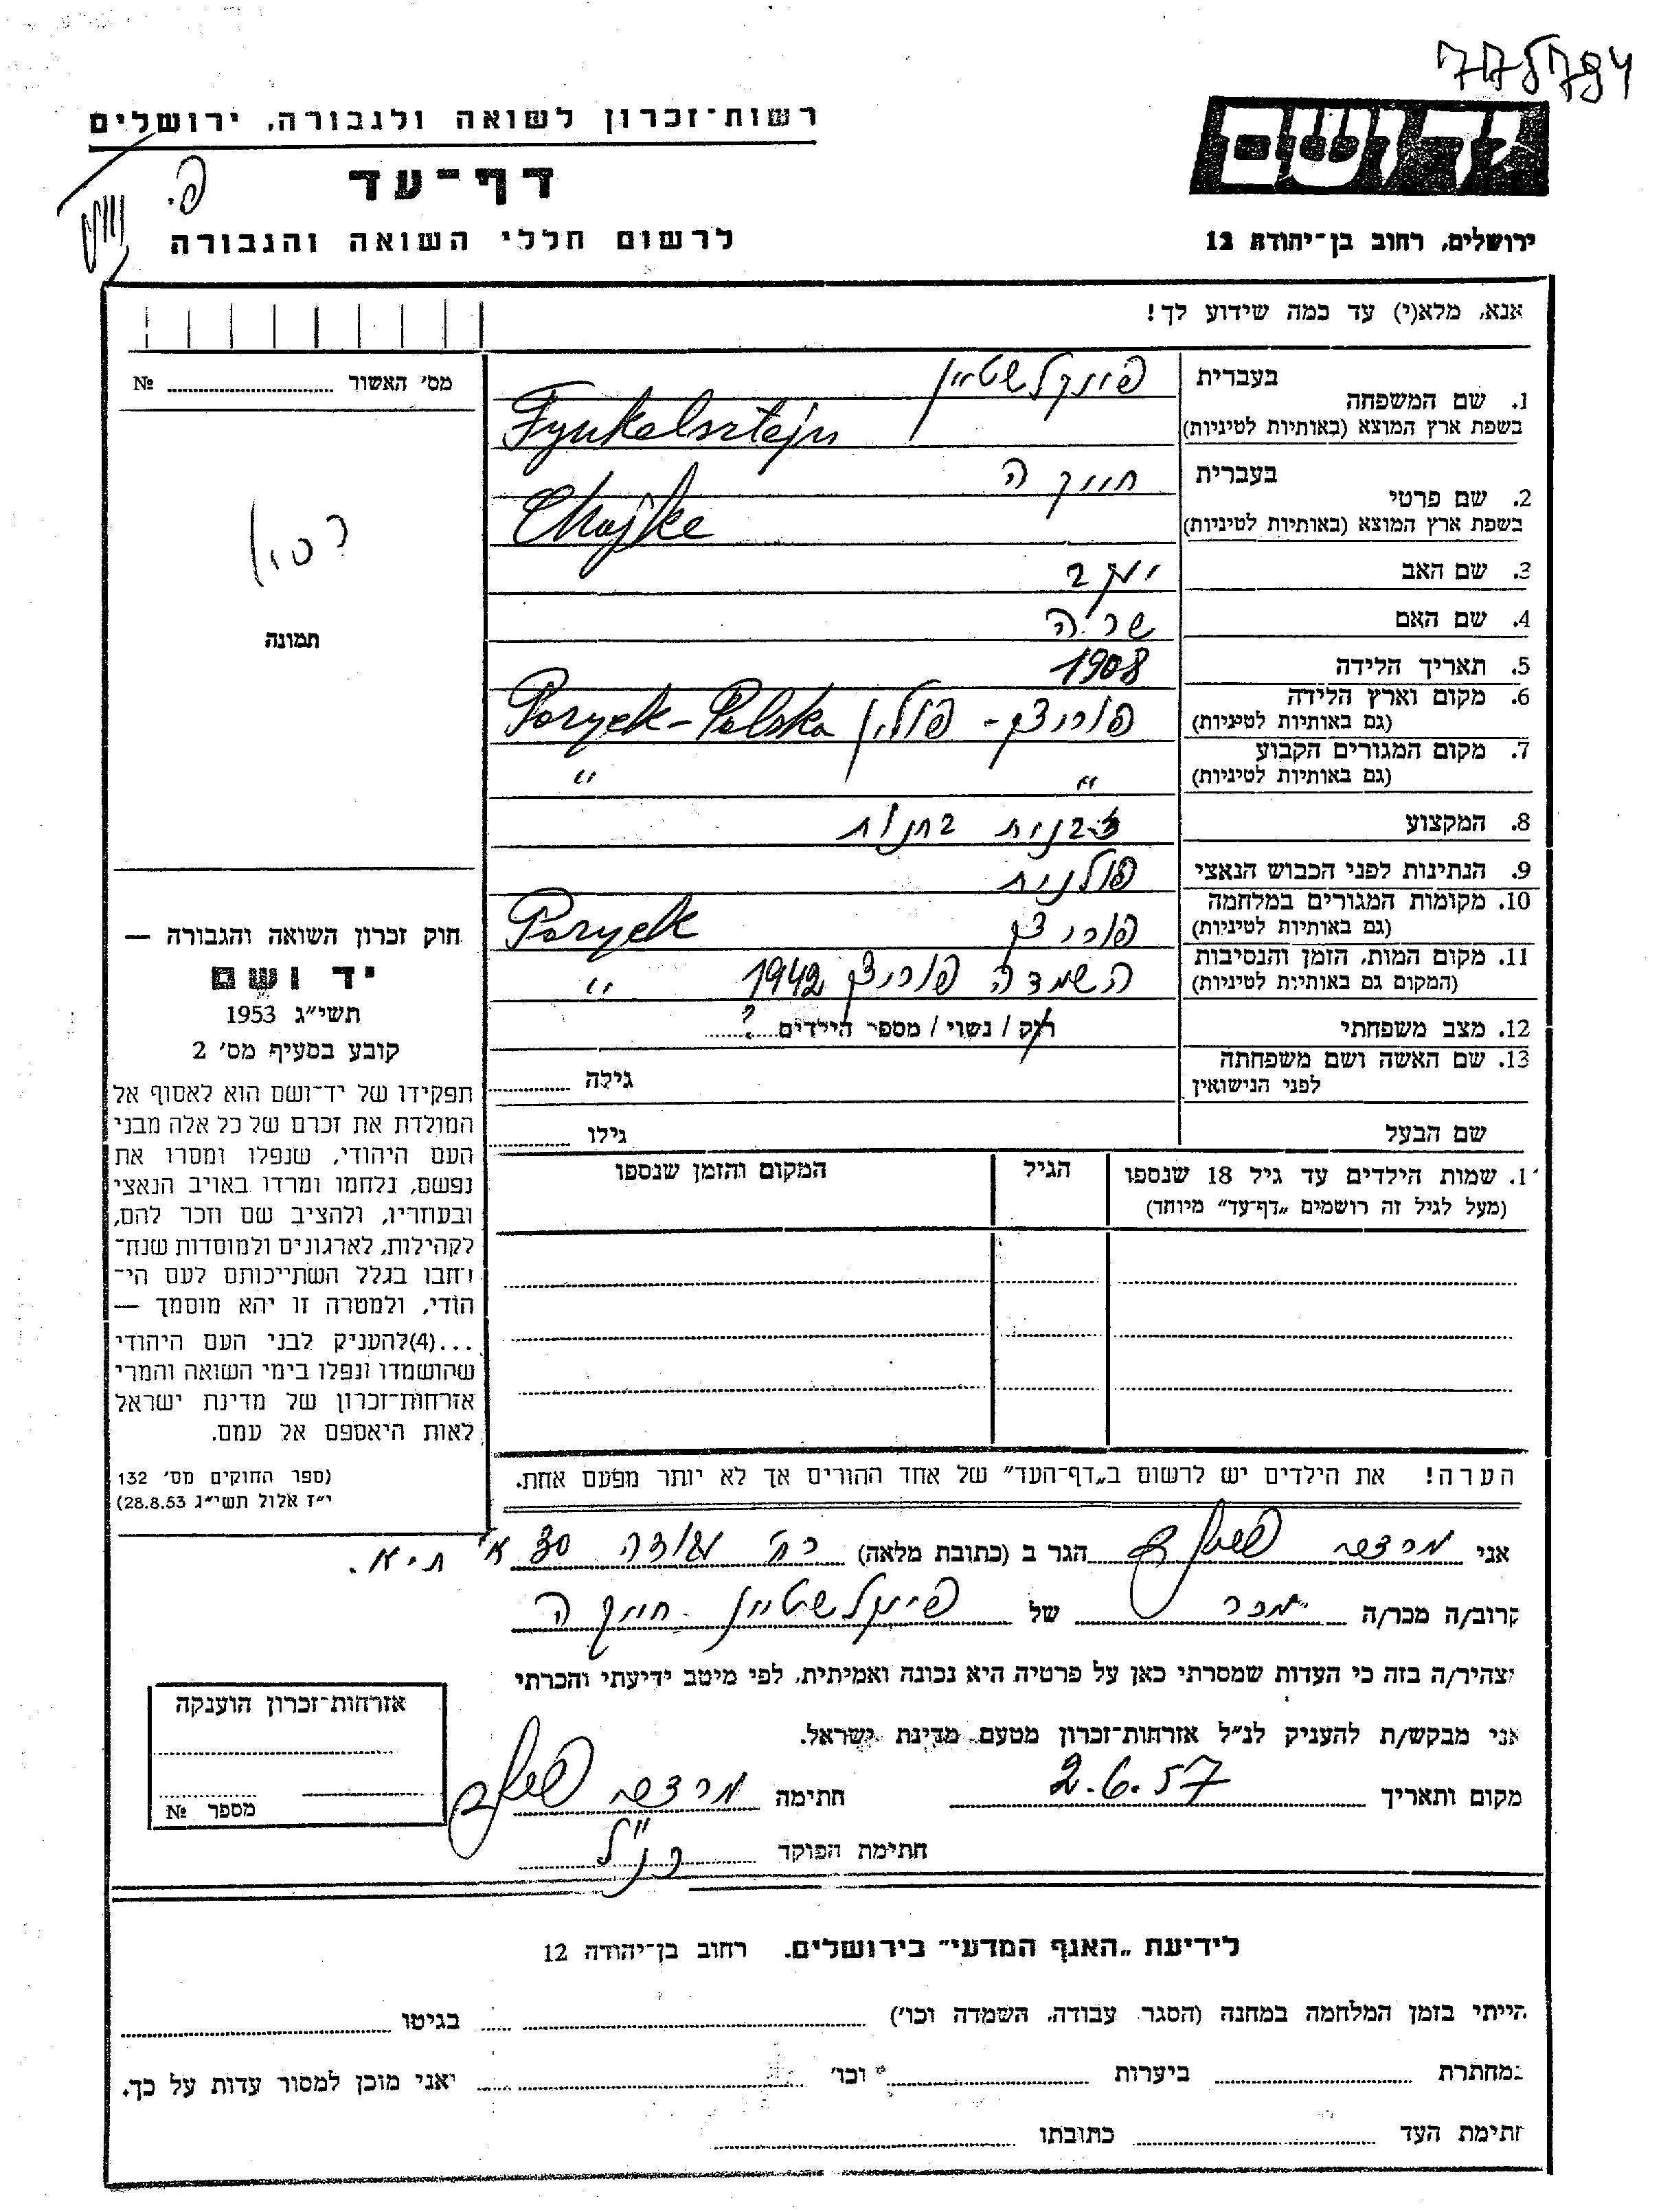 רשות־זכרון לשואה ולגבורה, ירושלים
דף־עד
לרשום חללי השואה והגבורה
ירושלים, רחוב בן־יהודה 12
אנא, מלא(י) עד כמה שידוע לך!
מס' האשור № ........
בעברית פינקלשטיין
1. שם המשפחה
בשפת ארץ המוצא (באותיות לטיניות) Fynkelsztejn
בעברית חייקה
2. שם פרטי
בשפת ארץ המוצא (באותיות לטיניות) Chajke
3. שם האב יעקב
4. שם האם שרה
5. תאריך הלידה 1908
6. מקום וארץ הלידה
(גם באותיות לטיניות) פוריצק - פולין Poryck-Polska
7. מקום המגורים הקבוע
(גם באותיות לטיניות) " "
8. המקצוע זבנית בחנות
9. הנתינות לפני הכבוש הנאצי פולנית
10. מקומות המגורים במלחמה
(גם באותיות לטיניות) פוריצק Poryck
11. מקום המות, הזמן והנסיבות
(המקום גם באותיות לטיניות) השמדה פוריצק 1942 "
12. מצב משפחתי רוק / נשוי / מספר הילדים ?
13. שם האשה ושם משפחתה
לפני הנישואין גילה
שם הבעל גילו
1. שמות הילדים עד גיל 18 שנספו הגיל המקום והזמן שנספו
(מעל לגיל זה רושמים „דף־עד" מיוחד)
הערה! את הילדים יש לרשום ב„דף־העד" של אחד ההורים אך לא יותר מפעם אחת.
תמונה
חוק זכרון השואה והגבורה —
יד ושם
תשי"ג 1953
קובע בסעיף מס' 2
תפקידו של יד־ושם הוא לאסוף אל
המולדת את זכרם של כל אלה מבני
העם היהודי, שנפלו ומסרו את
נפשם, נלחמו ומרדו באויב הנאצי
ובעוזריו, ולהציב שם וזכר להם,
לקהילות, לארגונים ולמוסדות שנח־
רחבו בגלל השתייכותם לעם הי־
הודי, ולמטרה זו יהא מוסמך —
...(4) להעניק לבני העם היהודי
שהושמדו ונפלו בימי השואה והמרי
אזרחות־זכרון של מדינת ישראל
לאות היאספם אל עמם.
(ספר החוקים מס' 132
י"ז אלול תשי"ג 28.8.53)
אני הגר ב (כתובת מלאה) רח' 30 א' ת"א.
קרוב/ה מכר/ה מכר של פינקלשטיין חייקה
מצהיר/ה בזה כי העדות שמסרתי כאן על פרטיה היא נכונה ואמיתית, לפי מיטב ידיעתי והכרתי
אני מבקש/ת להעניק לנ"ל אזרחות־זכרון מטעם מדינת ישראל.
מקום ותאריך 2.6.57 חתימה
חתימת הפוקד כנ"ל
אזרחות־זכרון הוענקה
מספר №
לידיעת „האגף המדעי" בירושלים, רחוב בן־יהודה 12
הייתי בזמן המלחמה במחנה (הסגר, עבודה, השמדה וכו') בגיטו
במחתרת ביערות וכו' ואני מוכן למסור עדות על כך.
חתימת העד כתובתו